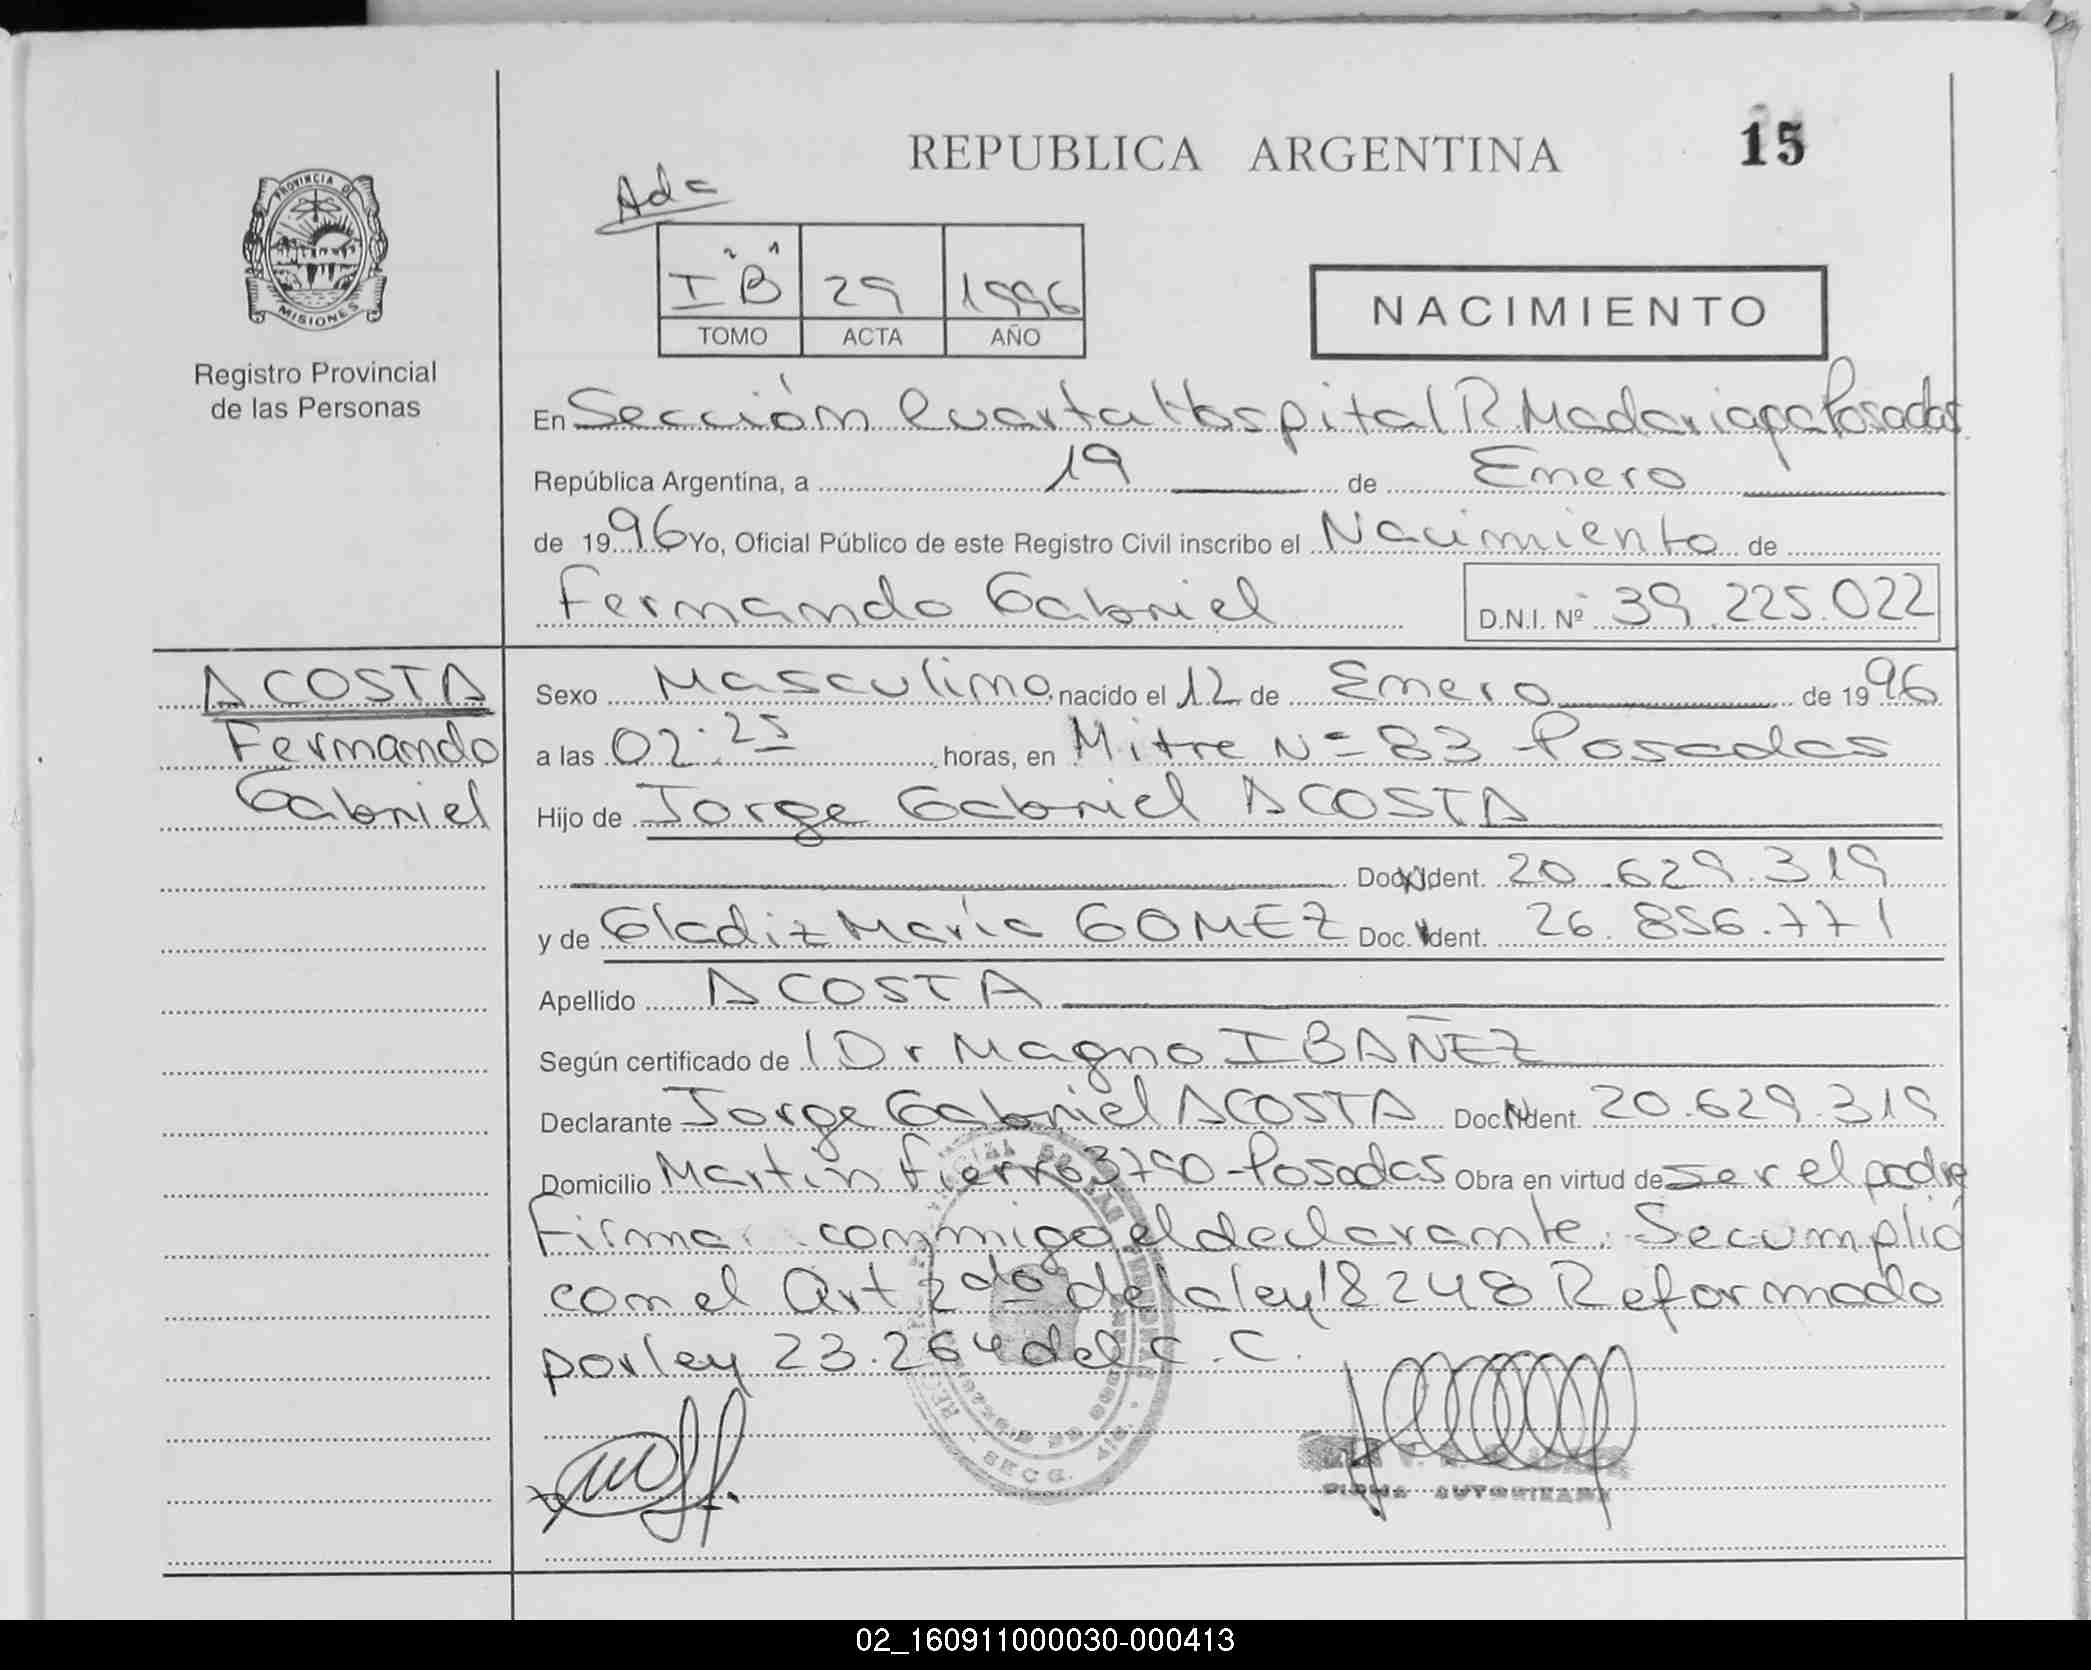 REPUBLICA ARGENTINA
15
PROVINCIA DE
MISIONES
Registro Provincial
de las Personas
Ada
I "B" 29 1996
TOMO ACTA AÑO
NACIMIENTO
En Sección Cuarta Hospital R Madariaga Posadas
República Argentina, a 19 de Enero
de 1996 Yo, Oficial Público de este Registro Civil inscribo el Nacimiento de
Fernando Gabriel D.N.I. Nº 39.225.022
ACOSTA
Fernando
Gabriel
Sexo Masculino nacido el 12 de Enero de 1996
a las 02:25 horas, en Mitre Nº 83 Posadas
Hijo de Jorge Gabriel ACOSTA
Doc. Ident. 20.629.319
y de Gladiz María GOMEZ Doc. Ident. 26.856.771
Apellido ACOSTA
Según certificado de Dr Magno IBAÑEZ
Declarante Jorge Gabriel ACOSTA Doc. Ident. 20.629.319
Domicilio Martín Fierro 3790 Posadas Obra en virtud de ser el padre
Firma conmigo el declarante. Se cumplió
con el Art 2do de la ley 18248 Reformado
por ley 23.264 del C.C.
SECC.
FIRMA AUTORIZADA
02_160911000030-000413